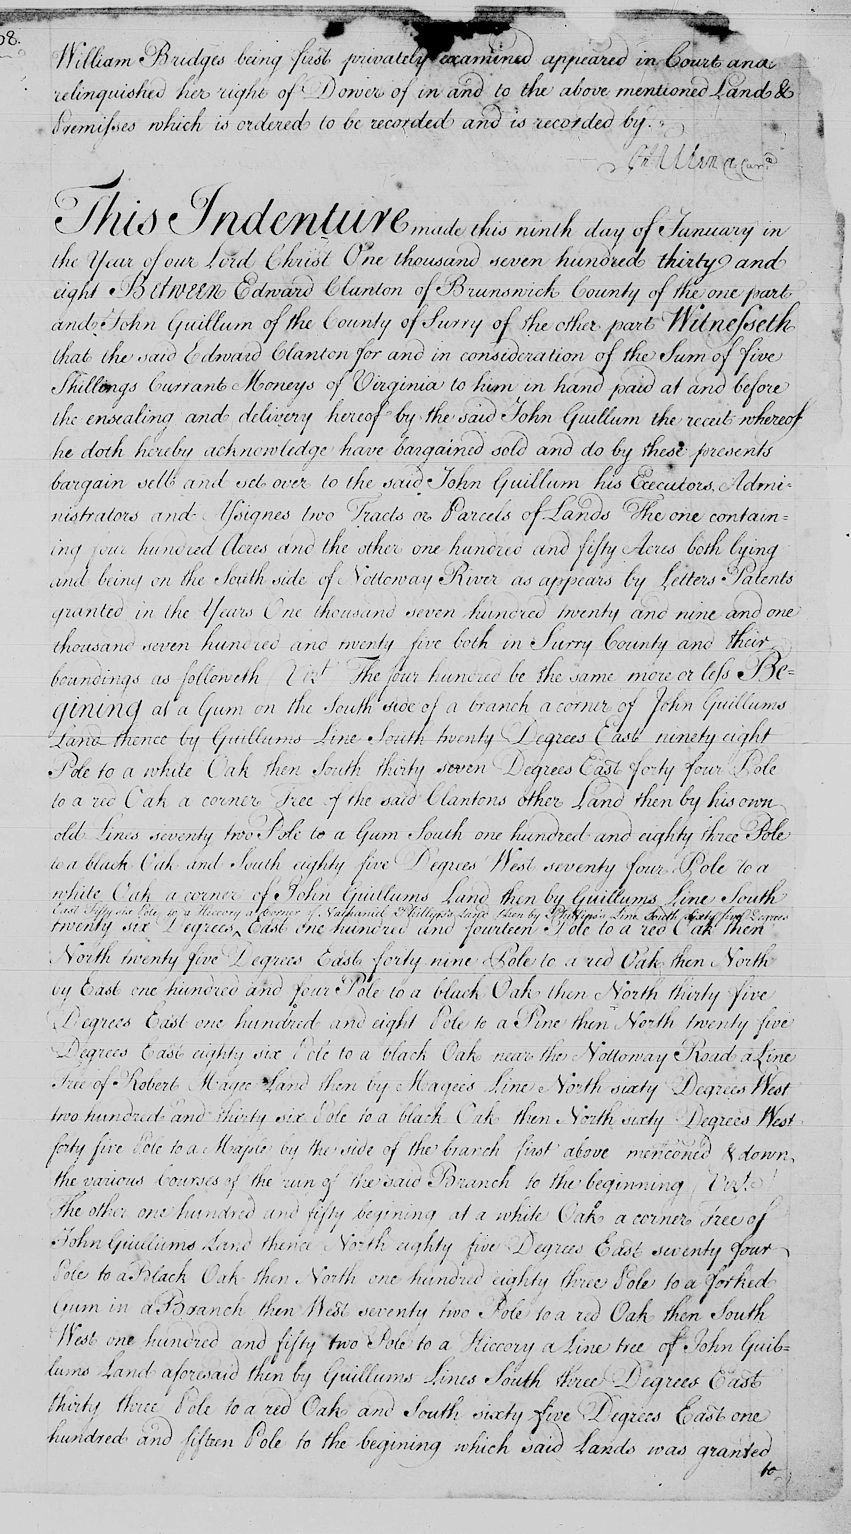 08.
William Bridges being first privately examined appeared in Court and
relinquished her right of Dower of in and to the above mentioned Land &
Premisses which is ordered to be recorded and is recorded by.
This Indenture made this ninth day of January in
the Year of our Lord Christ One thousand seven hundred thirty and
eight Between Edward Clanton of Brunswick County of the one part
and John Guillum of the County of Surry of the other part Witnesseth
that the said Edward Clanton for and in consideration of the Sum of five
Shillings Currant Moneys of Virginia to him in hand paid at and before
the ensealing and delivery hereof by the said John Guillum the receit whereof
he doth hereby acknowledge have bargained sold and do by these presents
bargain sell and set over to the said John Guillum his Executors, Admi-
nistrators and Assignes two Tracts or Parcels of Lands The one contain=
ing four hundred Acres and the other one hundred and fifty Acres both lying
and being on the South side of Nottoway River as appears by Letters Patents
granted in the Years One thousand seven hundred twenty and nine and one
thousand seven hundred and twenty five both in Surry County and their
boundings as followeth (Vizt The four hundred be the same more or less Be=
gining at a Gum on the South side of a branch a corner of John Guillums
Land thence by Guillums Line South twenty Degrees East ninety eight
Pole to a white Oak then South thirty seven Degrees East forty four Pole
to a red Oak a corner Tree of the said Clantons other Land then by his own
old Lines seventy two Pole to a Gum South one hundred and eighty three Pole
to a black Oak and South eighty five Degrees West seventy four Pole to a
white Oak a corner of John Guillums Land then by Guillums Line South
East fifty six Pole to a Hiccory a corner of Nathaniel Phillips's Land then by Phillips's Line South sixty five Degrees
twenty six Degrees ^ East one hundred and fourteen Pole to a red Oak then
North twenty five Degrees East forty nine Pole to a red Oak then North
by East one hundred and four Pole to a black Oak then North thirty five
Degrees East one hundred and eight Pole to a Pine then North twenty five
Degrees East eighty six Pole to a black Oak near the Nottoway Road a Line
Tree of Robert Magee Land then by Magees Line North sixty Degrees West
two hundred and thirty six Pole to a black Oak then North sixty Degrees West
forty five Pole to a Maple by the side of the branch first above menconed & down
the various Courses of the run of the said Branch to the beginning (Vizt)
The other one hundred and fifty begining at a white Oak a corner Tree of
John Guillums Land thence North eighty five Degrees East seventy four
Pole to a Black Oak then North one hundred eighty three Pole to a forked
Gum in a Branch then West seventy two Pole to a red Oak then South
West one hundred and fifty two Pole to a Hiccory a Line tree of John Guil=
lums Land aforesaid then by Guillums Lines South three Degrees East
thirty three Pole to a red Oak and South sixty five Degrees East one
hundred and fifteen Pole to the begining which said Lands was granted
to